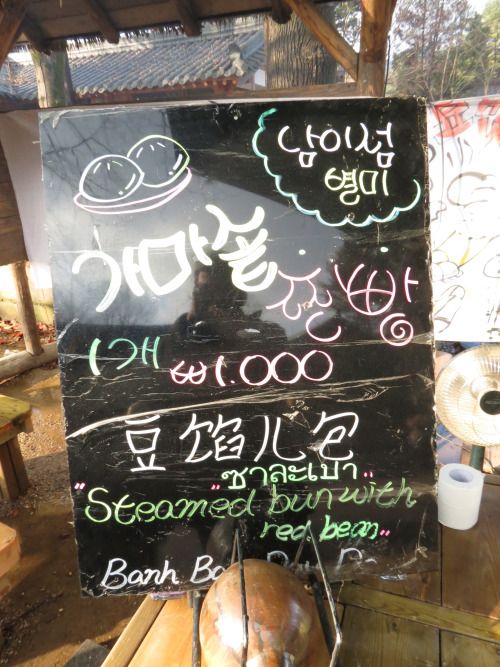 남이섬
별미
가마솥
찐빵
1개 ₩1.000
豆馅儿包
"ซาละเปา"
"Steamed bun with
red bean"
Banh Bao